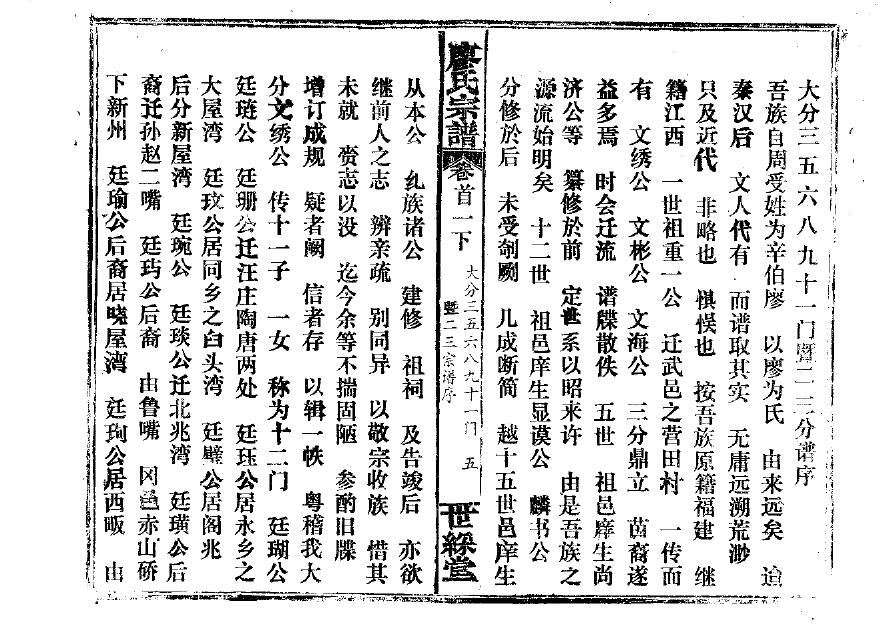 大分三五六八九十一门暨二三分谱序
吾族自周受姓为辛伯廖 以廖为氏 由来远矣 逾
秦汉后 文人代有 而谱取其实 无庸远溯荒渺
只及近代 非略也 惧悮也 按吾族原籍福建 继
籍江西 一世祖重一公 迁武邑之营田村 一传而
有 文绣公 文彬公 文海公 三分鼎立 茵裔遂
益多焉 时会迁流 谱牒散佚 五世 祖邑庠生尚
济公等 纂修於前 定世系以昭来许 由是吾族之
源流始明矣 十二世 祖邑庠生显谟公 麟书公
分修於后 未受剞劂 几成断简 越十五世邑庠生
廖氏宗谱
卷首一下
大分三五六八九十一门
暨二三宗谱序
五
世綵堂
从本公 纠族诸公 建修 祖祠 及告竣后 亦欲
继前人之志 辨亲疏 别同异 以敬宗收族 惜其
未就 赍志以没 迄今余等不揣固陋 参酌旧牒
增订成规 疑者阙 信者存 以辑一帙 粤稽我大
分文绣公 传十一子 一女 称为十二门 廷瑚公
廷琏公 廷珊公迁汪庄陶唐两处 廷珏公居永乡之
大屋湾 廷玟公居同乡之白头湾 廷璧公居阁兆
后分新屋湾 廷琬公 廷琰公迁北兆湾 廷璜公后
裔迁孙赵二嘴 廷玙公后裔 由鲁嘴 冈邑赤山矫
下新州 廷瑜公后裔居晓屋湾 廷珣公居西畈 由